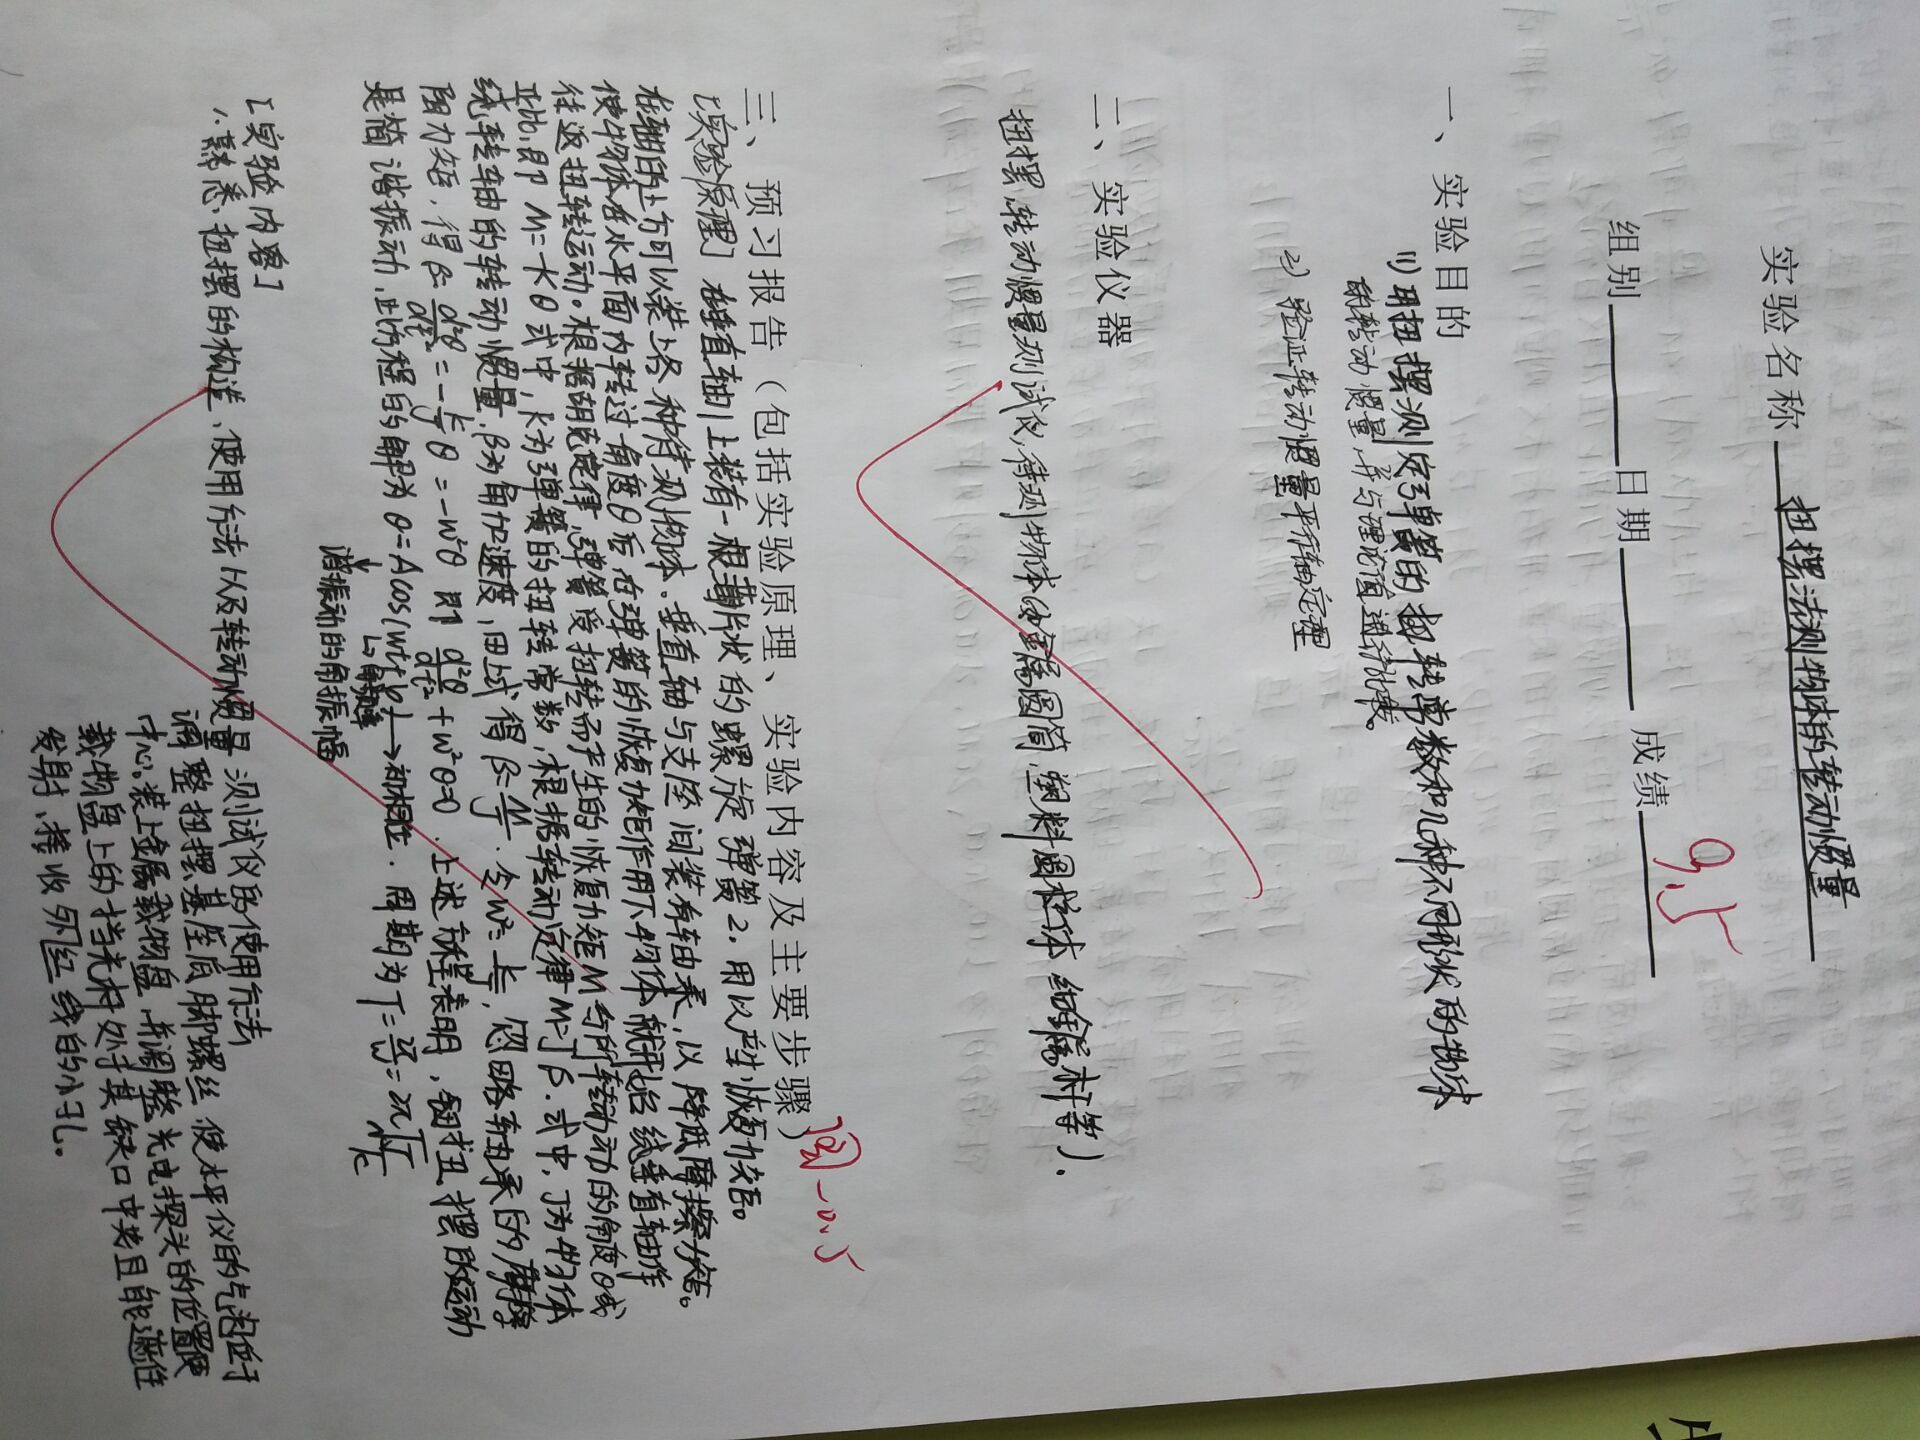 实验名称 扭摆法测物体的转动惯量
组别 日期 成绩 9.5
一、实验目的
(1) 用扭摆测定弹簧的扭转常数和几种不同形状的物体
的转动惯量,并与理论值进行比较。
2) 验证转动惯量平行轴定理
二、实验仪器
扭摆,转动惯量测试仪,待测物体(金属圆筒,塑料圆柱体 细金属杆等).
三、预习报告(包括实验原理、实验内容及主要步骤) 图-0.5
[实验原理] 在垂直轴1上装有一根薄片状的螺旋弹簧2.用以产生恢复力矩。
在轴的上方可以装上各种待测物体.垂直轴与支座间装有轴承,以降低摩擦力矩。
使物体在水平面内转过角度θ后,在弹簧的恢复力矩作用下,物体就开始绕垂直轴作
往返扭转运动。根据胡克定律,弹簧受扭转而产生的恢复力矩M与所转动的角度θ成
正比,即 M=-Kθ 式中,K为弹簧的扭转常数,根据转动定律 M=Jβ.式中,J为物体
绕转轴的转动惯量,β为角加速度,由上式得 β=M/J.令ω²=K/J,忽略轴承的摩擦
阻力矩,得 β=d²θ/dt²=-K/J θ=-ω²θ 即 d²θ/dt²+ω²θ=0.上述方程表明,扭摆的运动
是简谐振动,此方程的解为 θ=Acos(ωt+φ)→初相位.周期为T=2π/ω=2π√J/K
↳角频率
谐振动的角振幅
[实验内容]
1.熟悉扭摆的构造、使用方法以及转动惯量测试仪的使用方法
调整扭摆基座底脚螺丝 使水平仪的气泡位于
中心.装上金属载物盘,并调整光电探头的位置使
载物盘上的挡光杆处于其缺口中央且能遮住
发射、接收外红线的小孔。